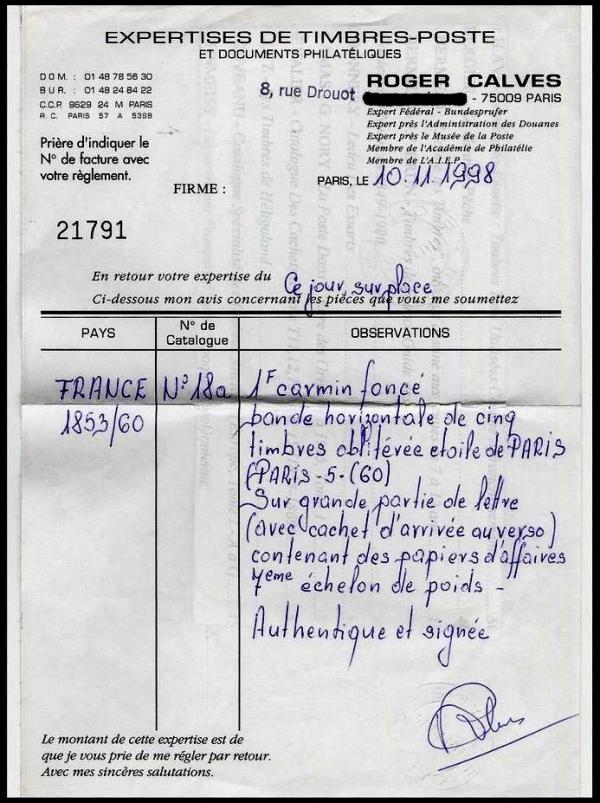 EXPERTISES DE TIMBRES-POSTE
ET DOCUMENTS PHILATÉLIQUES
DOM : 01 48 78 56 30
BUR. : 01 48 24 84 22
C.C.P. 9629 24 M PARIS
R.C. PARIS 57 A 5398
8, rue Drouot
ROGER CALVES
- 75009 PARIS
Expert Fédéral - Bundesprufer
Expert près l'Administration des Douanes
Expert près le Musée de la Poste
Membre de l'Académie de Philatélie
Membre de L'A.I.E.P.
Prière d'indiquer le
N° de facture avec
votre règlement.
FIRME :
PARIS, LE 10.11.1998
21791
En retour votre expertise du Ce jour, sur place
Ci-dessous mon avis concernant les pièces que vous me soumettez
PAYS
N° de
Catalogue
OBSERVATIONS
FRANCE N° 18a 1F carmin foncé
1853/60 bande horizontale de cinq
timbres oblitérée etoile de PARIS
(PARIS-5-(60)
Sur grande partie de lettre
(avec cachet d'arrivée au verso)
contenant des papiers d'affaires
7eme échelon de poids -
Authentique et signée
Le montant de cette expertise est de
que je vous prie de me régler par retour.
Avec mes sincères salutations.